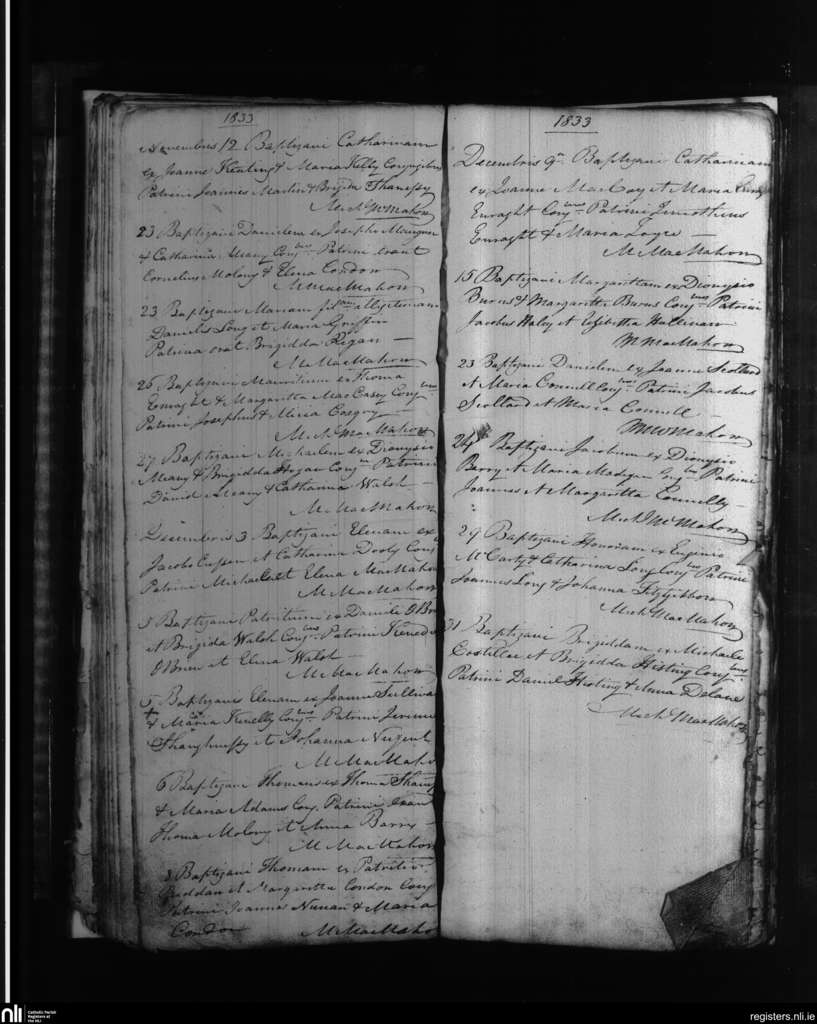 1833
Novembris 12 Baptizavi Catharinam
ex Joanne Keating & Maria Kelly Conjugibus
Patrini Joannes Martin & Brigida
Mich McMahon
23 Baptizavi Danielem ex Josepho Mangan
& Catharina Meany Conj bus Patrini erant
Cornelius Molony & Elena Condon
M MacMahon
23 Baptizavi Mariam filiam illegitimam
Danielis Long et Maria Griffin
Patrina erat Brigidda Regan
M MacMahon
26 Baptizavi Mauritium ex Thoma
Enraght & Margaretta MacCasey Conj
Patrini Josephus & Alicia Cosgry
Mich MacMahon
27 Baptizavi Michaelem ex Dionysio
Meany & Brigidda Hogan Conj Patrini
David Meany & Catharina Walsh
M MacMahon
Decembris 3 Baptizavi Elenam ex
Jacobo et Catharina Dooly Conj
Patrini Michael et Elena MacMahon
M MacMahon
5 Baptizavi Patritium ex Daniele O Brien
et Brigida Walsh Conj bus Patrini
O Brien et Elena Walsh
M MacMahon
5 Baptizavi Elenam ex Joanne Sullivan
& Maria Kenelly Conj bus Patrini
Shaughnessy et Johanna Nugent
M MacMaho
6 Baptizavi Thomam ex Thoma
& Maria Adams Conj. Patrini erant
Thoma Molony et Anna Barry
M MacMahon
8 Baptizavi Thomam ex Patritio
et Margaretta Condon Conj
Patrini Joannes Nunan & Maria
Condon M MacMaho
1833
Decembris 9 Baptizavi Catharinam
ex Joanne MacCoy et Maria
Enraght Conj bus Patrini Timotheus
Enraght & Maria Joyce
M MacMahon
15 Baptizavi Margarettam ex Dionysio
Burns & Margaretta Burns Conj bus Patrini
Jacobus Haley et Elisibettha Hallinan
M MacMahon
23 Baptizavi Danielem ex Joanne Scollard
et Maria Connell Conj bus Patrini Jacobus
Scollard et Maria Connell
M McMahon
24 Baptizavi Jacobum ex Dionysio
Berry et Maria Madigan Conj bus Patrini
Joannes et Margaretta Connelly
Mich McMahon
29 Baptizavi Honoram ex Eugenio
McCarty & Catharina Long Conj bus Patrini
Joannes Long & Johanna Fitzgibbon
Mich MacMahon
31 Baptizavi Brigiddam ex Michaele
Costilloe et Brigidda Histing Conj bus
Patrini Daniel Histing & Anna Delane
Mich MacMahon
nli
Catholic Parish
Registers at
the NLI
registers.nli.ie